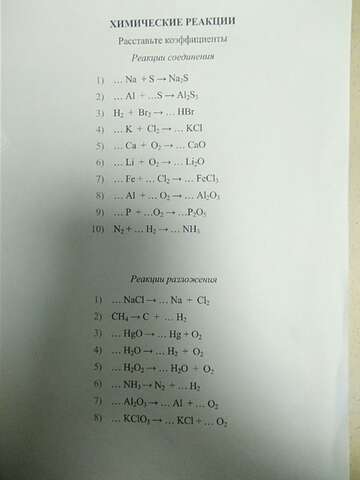 ХИМИЧЕСКИЕ РЕАКЦИИ
Расставьте коэффициенты
Реакции соединения
1) … Na + S → Na₂S
2) … Al + …S → Al₂S₃
3) H₂ + Br₂ → … HBr
4) … K + Cl₂ → … KCl
5) … Ca + O₂ → … CaO
6) … Li + O₂ → … Li₂O
7) … Fe + … Cl₂ → … FeCl₃
8) … Al + … O₂ → … Al₂O₃
9) … P + …O₂ → …P₂O₅
10) N₂ + … H₂ → … NH₃
Реакции разложения
1) … NaCl → … Na + Cl₂
2) CH₄ → C + … H₂
3) … HgO → … Hg + O₂
4) … H₂O → … H₂ + O₂
5) … H₂O₂ → … H₂O + O₂
6) … NH₃ → N₂ + … H₂
7) … Al₂O₃ → … Al + … O₂
8) … KClO₃ → … KCl + … O₂